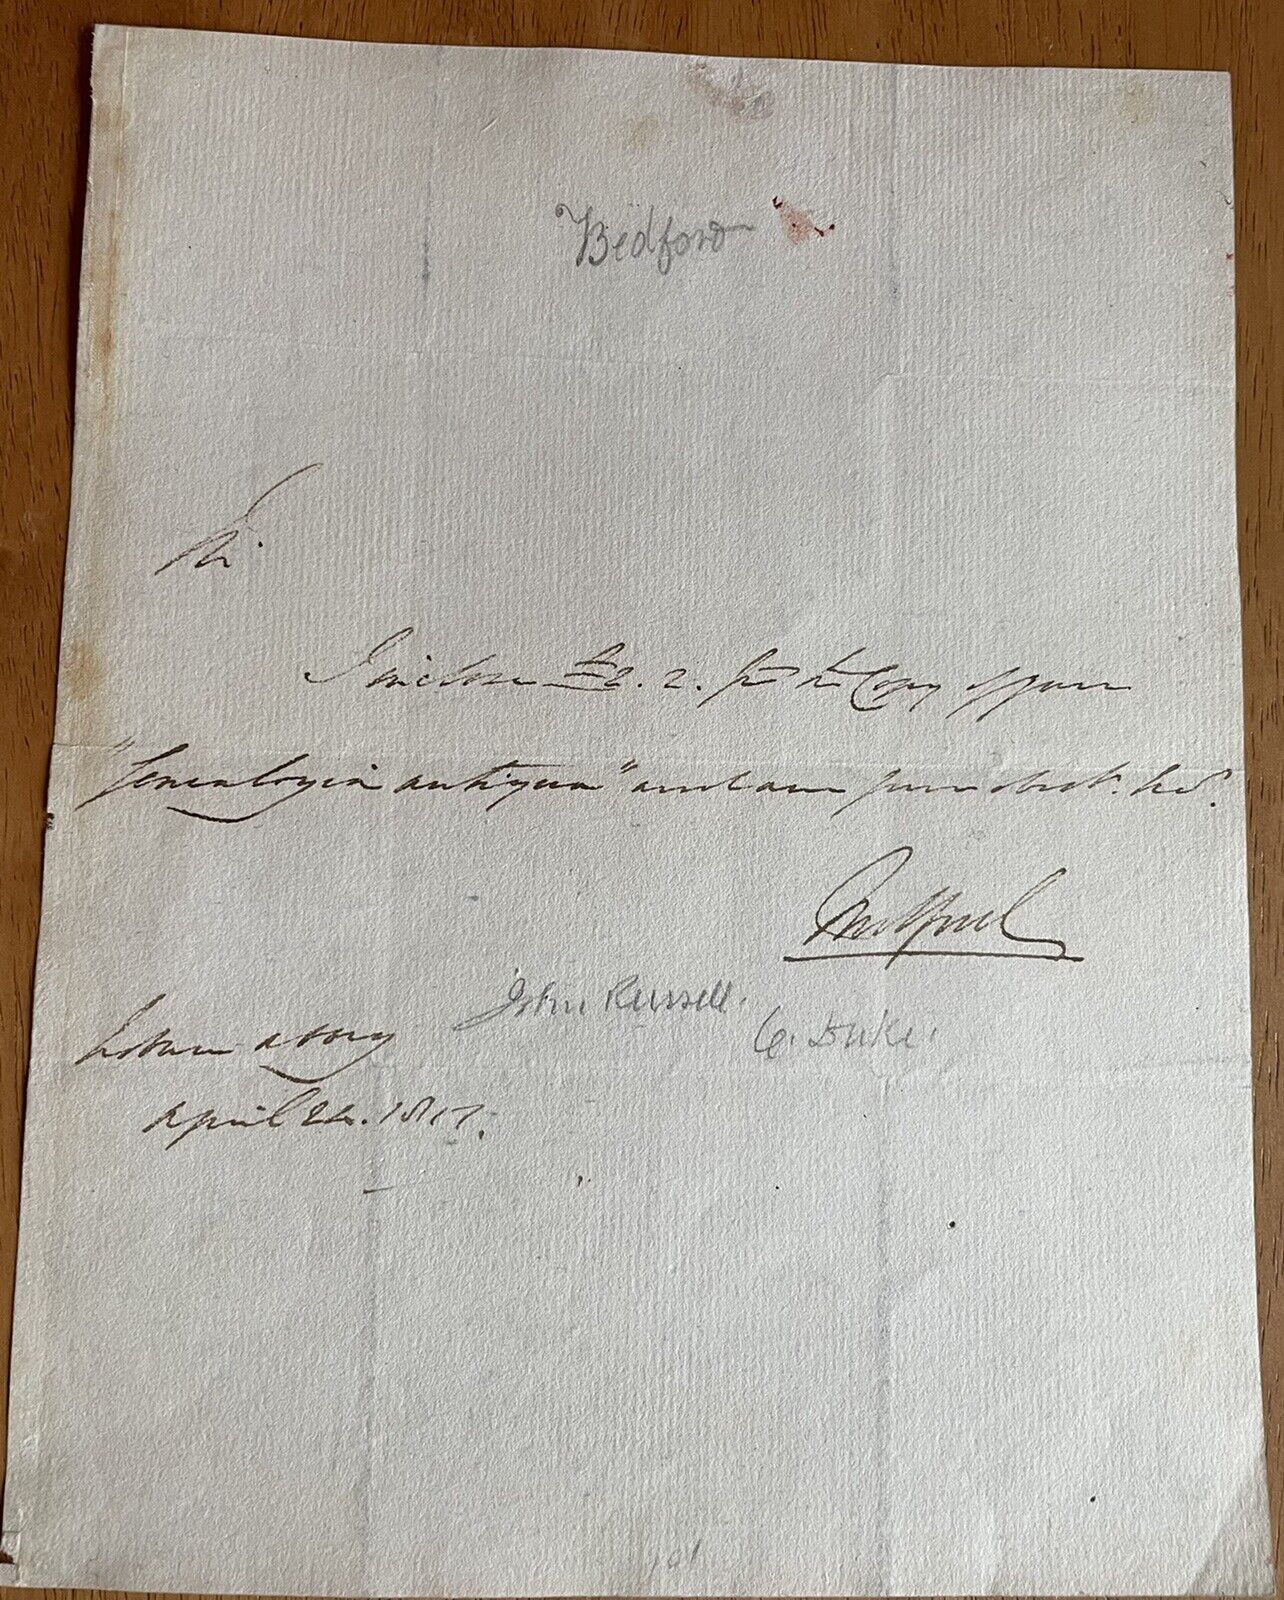 Bedford
Sir
I inclose £2. 2. for the Copy of your
"Genealogia antiqua" and am your obedt. Sert.
Bedford
John Russell.
6. Duke.
Woburn abbey
April 24. 1817.